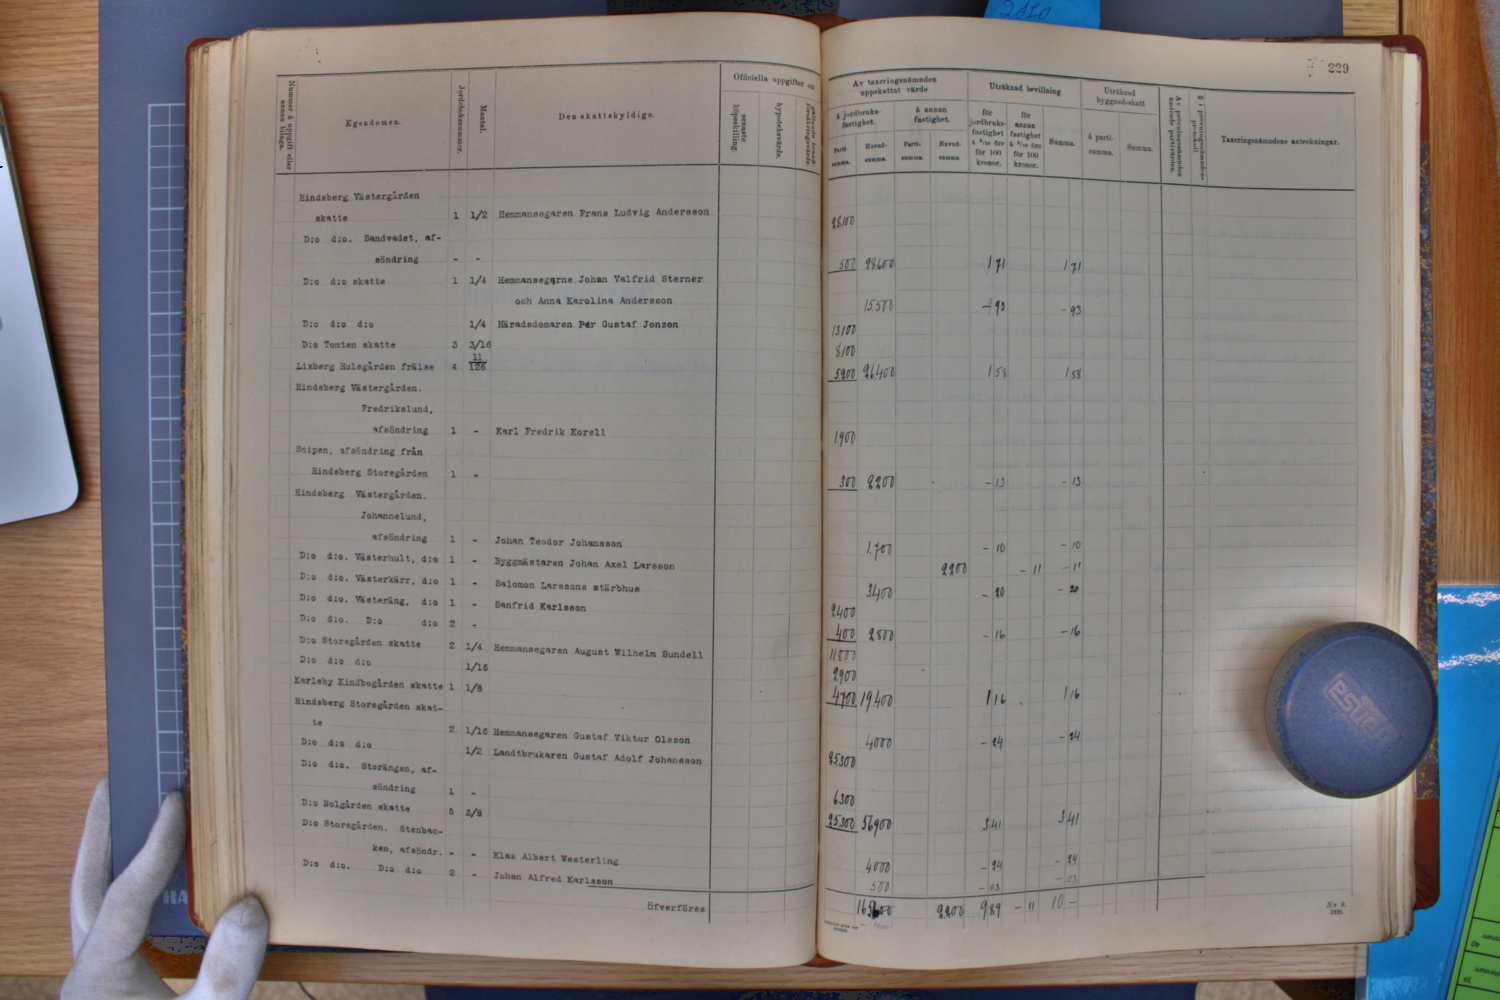 229
Nummer å uppgift eller annan bilaga.
Egendomen.
Jordeboksnummer.
Mantal.
Den skattskyldige.
Officiella uppgifter om
senaste köpeskilling.
hypoteksvärde.
Av taxeringsnämnden uppskattat värde
å jordbruks-fastighet.
å annan fastighet.
Parti-summa.
Huvud-summa.
Parti-summa.
Huvud-summa.
Uträknad bevillning
för jordbruks-fastighet å 6/10 öre för 100 kronor.
för annan fastighet å 5/10 öre för 100 kronor.
Summa.
Uträknad byggnadsskatt
å parti-summa.
Summa.
Taxeringsnämndens anteckningar.
Hindsberg Västergården
skatte 1 1/2 Hemmansegaren Frans Ludvig Andersson 28,100
D:o d:o. Sandvadet, af-
söndring - - 500 28600 1 71 1 71
D:o d:o skatte 1 1/4 Hemmansegarne Johan Valfrid Sterner
och Anna Karolina Andersson 15.500 - 93 - 93
D:o d:o d:o 1/4 Häradsdomaren Per Gustaf Jonzon 13,100
D:o Tomten skatte 3 3/16 8,100
Lixberg Hulegården frälse 4 11/128 5200 26,400 1 58 1 58
Hindsberg Västergården.
Fredrikslund,
afsöndring 1 - Karl Fredrik Korell 1900
Snipen, afsöndring från
Hindsberg Storegården 1 - 300 2200 - 13 - 13
Hindsberg Västergården.
Johannelund,
afsöndring 1 - Johan Teodor Johansson 1.700 - 10 - 10
D:o d:o. Västerhult, d:o 1 - Byggmästaren Johan Axel Larsson 2200 - 11 - 11
D:o d:o. Västerkärr, d:o 1 - Salomon Larssons stärbhus 3400 - 20 - 20
D:o d:o. Västeräng, d:o 1 - Sanfrid Karlsson 2400
D:o d:o. D:o d:o 2 - 400 2800 - 16 - 16
D:o Storegården skatte 2 1/4 Hemmansegaren August Wilhelm Sundell 11800
D:o d:o d:o 1/16 2900
Karlsby Kindbogården skatte 1 1/8 4700 19,400 1 16 1 16
Hindsberg Storegården skat-
te 2 1/16 Hemmansegaren Gustaf Viktor Olsson 4000 - 24 - 24
D:o d:o d:o 1/2 Landtbrukaren Gustaf Adolf Johansson 25300
D:o d:o. Storängen, af-
söndring 1 - 6300
D:o Nolgården skatte 5 3/8 25300 56900 3 41 3 41
D:o Storegården. Stenbac-
ken, afsöndr. - - Klas Albert Westerling 4000 - 24 - 24
D:o d:o. D:o d:o 2 - Johan Alfred Karlsson 500 - 03 - 03
Öfverföres 2200 9 89 - 11 10 -
N:r 3.